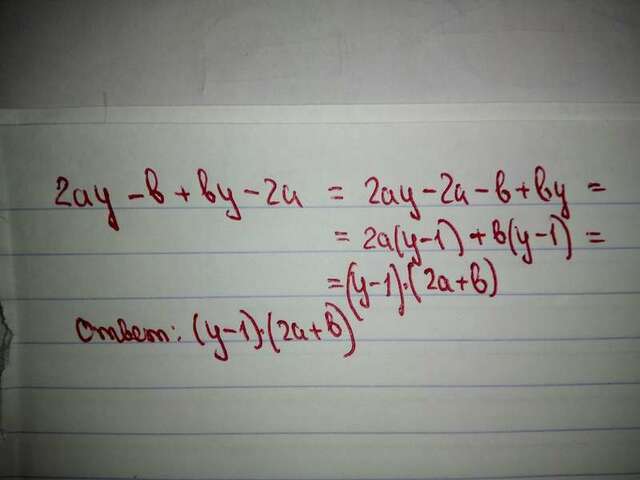 2ay - в + вy - 2a = 2ay - 2a - в + вy =
= 2a(y-1) + в(y-1) =
= (y-1)·(2a+в)
ответ: (y-1)·(2a+в)